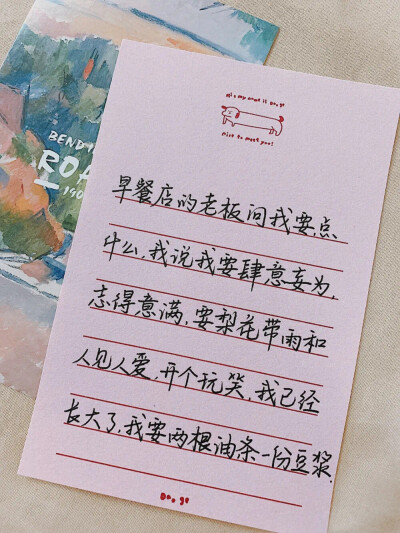 BEND
ROA
190
Hi! my name is Do. ge
nice to meet you!
早餐店的老板问我要点
什么,我说我要肆意妄为,
志得意满,要梨花带雨和
人见人爱,开个玩笑,我已经
长大了,我要两根油条一份豆浆.
Do. ge